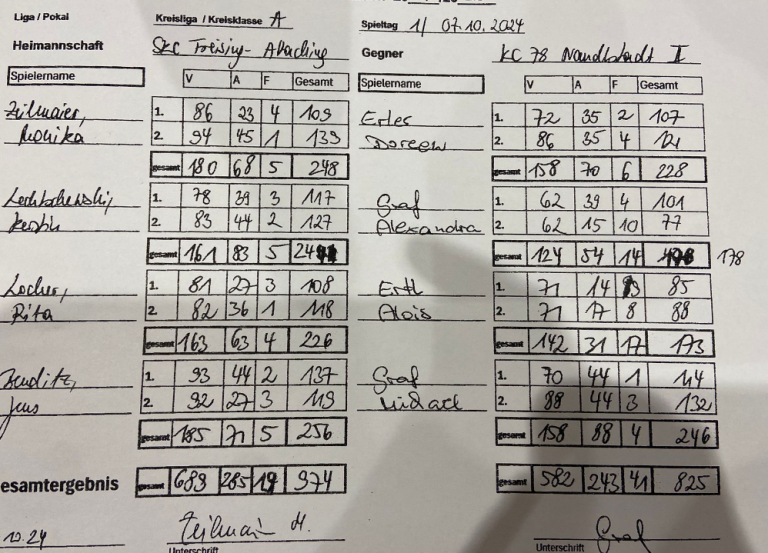 Liga / Pokal Kreisliga / Kreisklasse A Spieltag 1/ 07.10.2024
Heimannschaft SKC Freising - Gegner KC 78 Nandlstadt II
Spielername V A F Gesamt Spielername V A F Gesamt
Zeilmaier, 1. 86 23 4 109 1. 72 35 2 107
Monika 2. 94 45 1 139 Doreen 2. 86 35 4 121
gesamt 180 68 5 248 gesamt 158 70 6 228
1. 78 39 3 117 Graf 1. 62 39 4 101
Kerstin 2. 83 44 2 127 Alexandra 2. 62 15 10 77
gesamt 161 83 5 gesamt 124 54 14 178
Locher, 1. 81 27 3 108 Ertl 1. 71 14 9 85
Rita 2. 82 36 1 118 Alois 2. 71 17 8 88
gesamt 163 63 4 226 gesamt 142 31 17 173
1. 93 44 2 137 Graf 1. 70 44 1 114
Jens 2. 92 27 3 119 Michael 2. 88 44 3 132
gesamt 185 71 5 256 gesamt 158 88 4 246
esamtergebnis gesamt 689 285 19 974 gesamt 582 243 41 825
10.24 Zeilmaier M. Graf
Unterschrift Unterschrift